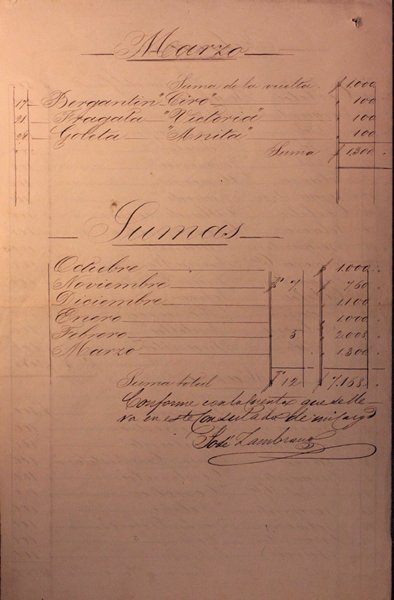 Marzo
Suma de la vuelta $ 1.000
17 Bergantin "Ciro" 100
21 Fragata "Victoria" 100
Goleta "Anita" 100
Suma $ 1.300
Sumas
Octubre $ 1.000
Noviembre 7 760
Diciembre 1100
Enero 1.000
Febrero 5 2.008
Marzo 1.300
Suma total 12 $ 7.168
Conforme con la cuenta que se lle
va en este Consulado de mi cargo
José Zambrano